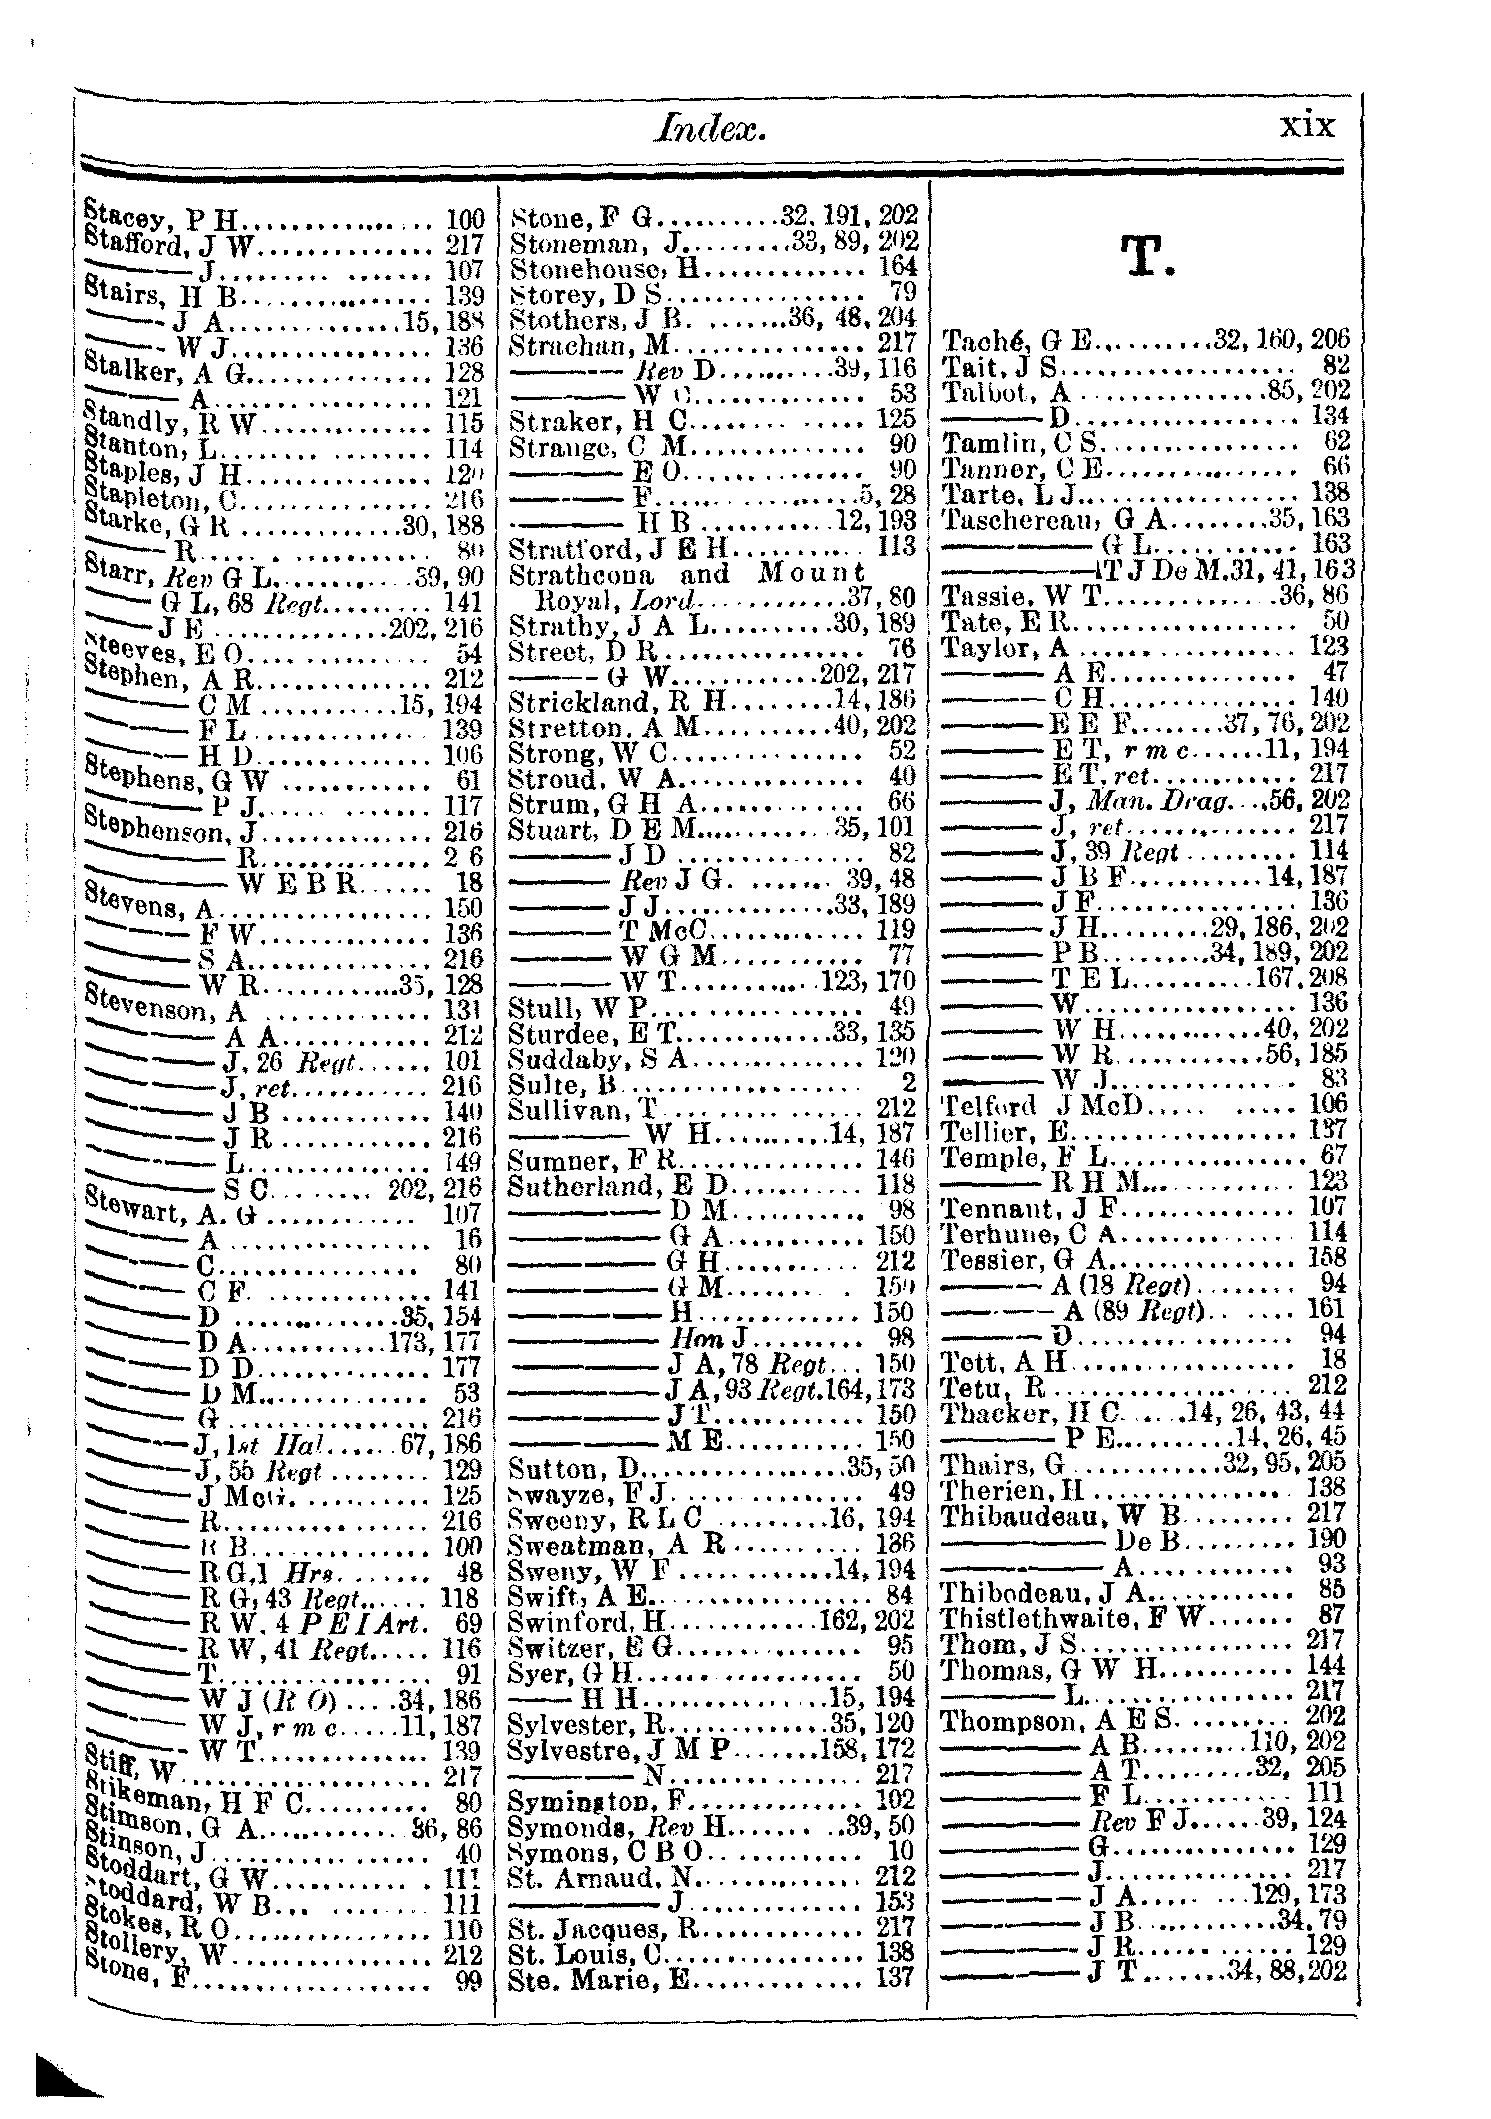 Index.
xix
Stacey, P H................ 100
Stafford, J W.............. 217
———J......... ....... 107
Stairs, H B............... 139
——J A..............15, 188
——W J................ 136
Stalker, A G............... 128
——A................. 121
Standly, R W.............. 115
Stanton, L........ ........ 114
Staples, J H............... 120
Stapleton, C............... 216
Starke, G R .............30, 188
——R..... . ........... 80
Starr, Rev G L...........39, 90
——G L, 68 Regt......... 141
——J E ..............202, 216
Steeves, E O.... .......... 54
Stephen, A R.............. 212
——C M ...........15, 194
——F L.............. 139
——H D.............. 106
Stephens, G W ............ 61
——P J..... ....... 117
Stephenson, J.............. 216
——R.............. 2 6
——W E B R...... 18
Stevens, A................. 150
——F W.............. 136
——S A............... 216
——W R...........35, 128
Stevenson, A ............. 131
——A A............ 212
——J, 26 Regt...... 101
——J, ret........... 216
——J B ............ 140
——J R ............ 216
——L............... 149
——S C........ 202, 216
Stewart, A. G ............ 107
——A ................ 16
——C................ 80
——C F. ............. 141
——D ..............35, 154
——D A...........173, 177
——D D.............. 177
——D M............. 53
——G ................ 216
——J, 1st Hal......67, 186
——J, 55 Regt ........ 129
——J McG. .......... 125
——R................. 216
——R B.............. 100
——R G, 1 Hrs........ 48
——R G, 43 Regt...... 118
——R W, 4 P E I Art. 69
——R W, 41 Regt..... 116
——T................. 91
——W J (R O) ....34, 186
——W J, r m c.....11, 187
——W T............. 139
Stiff, W.................... 217
Stikeman, H F C.......... 80
Stimson, G A............ 36, 86
Stinson, J.................. 40
Stoddart, G W........... . 111
Stoddard, W B... ........ 111
Stokes, R O................ 110
Stollery, W................ 212
Stone, F................... 99
Stone, F G..........32, 191, 202
Stoneman, J.........33, 89, 202
Stonehouse, H............. 164
Storey, D S................ 79
Stothers, J B. .......36, 48, 204
Strachan, M............... 217
——Rev D.........39, 116
——W C............. 53
Straker, H C........ ..... 125
Strange, C M.............. 90
——E O.............. 90
——F................5, 28
——H B ...........12, 193
Stratford, J E H........... 113
Strathcona and Mount
Royal, Lord............37, 80
Strathy, J A L..........30, 189
Street, D R................ 76
——G W............202, 217
Strickland, R H.........14, 186
Stretton, A M..........40, 202
Strong, W C............... 52
Stroud, W A............... 40
Strum, G H A............. 66
Stuart, D E M........... 35, 101
——J D ............... 82
——Rev J G. ....... 39, 48
——J J..............33, 189
——T McC............ 119
——W G M........... 77
——W T...........123, 170
Stull, W P.... ............ 49
Sturdee, E T............33, 135
Suddaby, S A.............. 120
Sulte, B................... 2
Sullivan, T ............... 212
——W H..........14, 187
Sumner, F R............... 146
Sutherland, E D........... 118
——D M........... 98
——G A........... 150
——G H........... 212
——G M......... . 150
——H.............. 150
——Hon J......... 98
——J A, 78 Regt... 150
——J A, 93 Regt.164, 173
——J T............ 150
——M E........... 150
Sutton, D................35, 50
Swayze, F J. ............. 49
Sweeny, R L C .........16, 194
Sweatman, A R .......... 136
Sweny, W F ............14, 194
Swift, A E................. 84
Swinford, H............162, 202
Switzer, E G............... 95
Syer, G H................. 50
——H H..............15, 194
Sylvester, R............35, 120
Sylvestre, J M P.......158, 172
——N............... 217
Symington, F.............. 102
Symonds, Rev H....... ..39, 50
Symons, C B O............ 10
St. Arnaud, N............. 212
——J............. 153
St. Jacques, R............. 217
St. Louis, C............... 138
Ste. Marie, E.............. 137
T.
Taché, G E..........32, 160, 206
Tait, J S................... 82
Talbot, A ..............85, 202
——D.................. 134
Tamlin, C S............... 62
Tanner, C E............... 66
Tarte, L J................. 138
Taschereau, G A........35, 163
——G L............ 163
——T J De M.31, 41, 163
Tassie, W T.............36, 86
Tate, E R.................. 50
Taylor, A ................. 123
——A E............... 47
——C H............... 140
——E E F.......37, 76, 202
——E T, r m c......11, 194
——E T, ret........... 217
——J, Man. Drag....56, 202
——J, ret.............. 217
——J, 39 Regt ......... 114
——J B F...........14, 187
——J F................ 136
——J H.........29, 186, 202
——P B.........34, 189, 202
——T E L..........167, 208
——W................. 136
——W H............40, 202
——W R............56, 185
——W J............... 83
Telford J McD..... ..... 106
Tellier, E.................. 137
Temple, F L................ 67
——R H M............ 123
Tennant, J F.............. 107
Terhune, C A.............. 114
Tessier, G A............... 158
——A (18 Regt)........ 94
——A (89 Regt).. ..... 161
——D.................. 94
Tett, A H................. 18
Tetu, R .................. 212
Thacker, H C......14, 26, 43, 44
——P E..........14, 26, 45
Thairs, G ............32, 95, 205
Therien, H ............... 138
Thibaudeau, W B......... 217
——De B......... 190
——A............ 93
Thibodeau, J A............ 85
Thistlethwaite, F W....... 87
Thom, J S................. 217
Thomas, G W H........... 144
——L................ 217
Thompson, A E S. ......... 202
——A B.........110, 202
——A T.........32, 205
——F L............ 111
——Rev F J......39, 124
——G.............. 129
——J............... 217
——J A..... ...129, 173
——J B............34, 79
——J R............ 129
——J T.......34, 88, 202